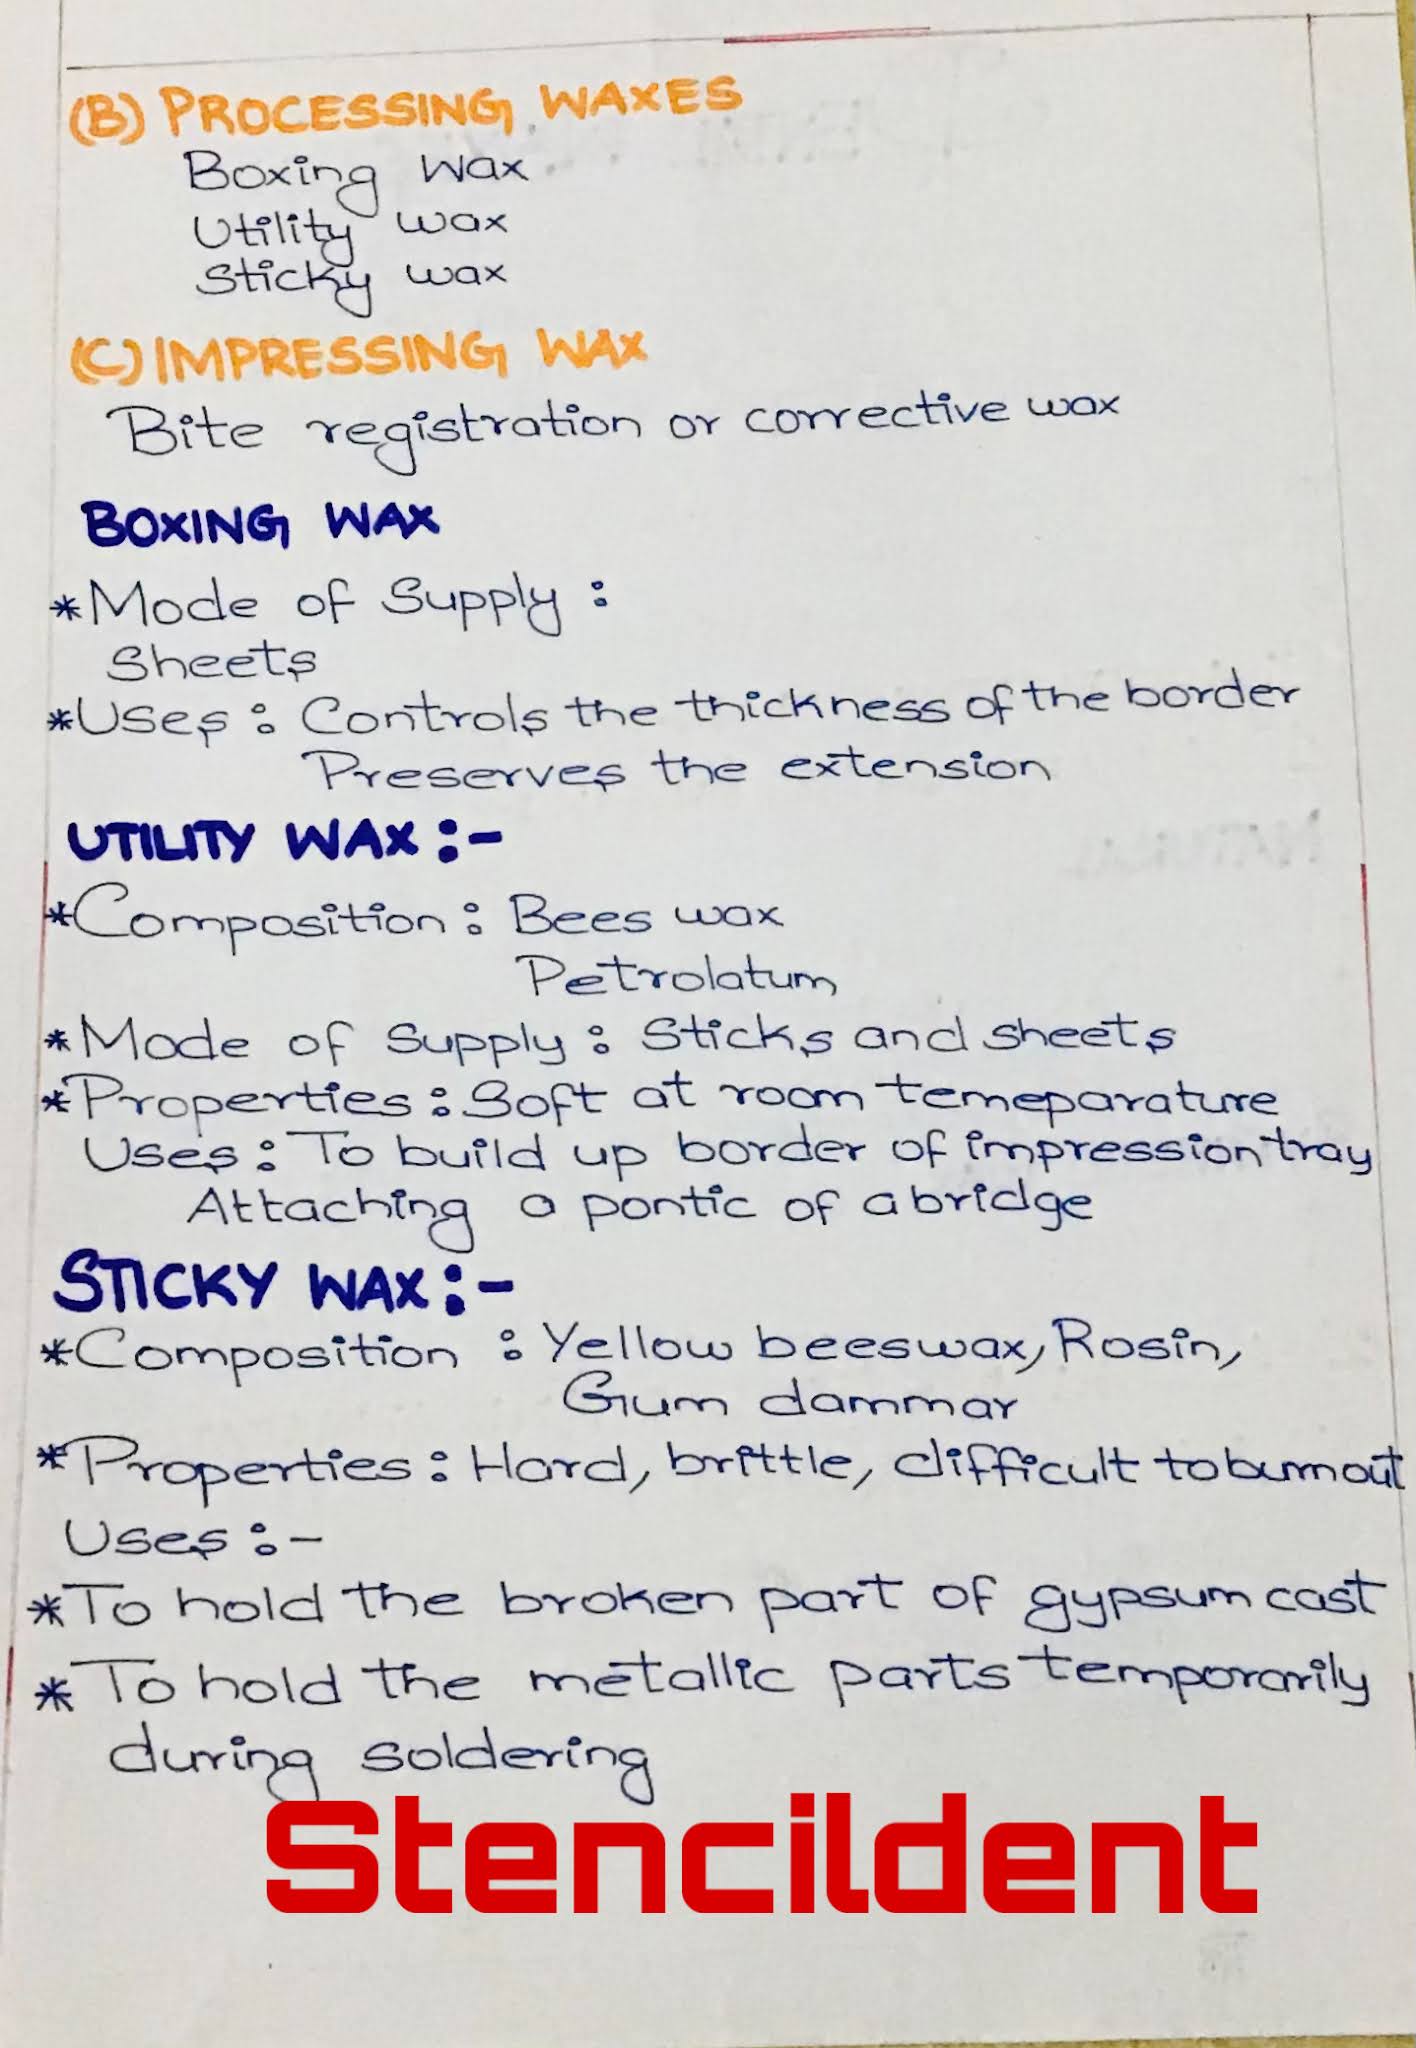 (B) PROCESSING WAXES
Boxing Wax
Utility wax
Sticky wax
(C) IMPRESSING WAX
Bite registration or corrective wax
BOXING WAX
*Mode of Supply :
Sheets
*Uses : Controls the thickness of the border
Preserves the extension
UTILITY WAX :-
*Composition : Bees wax
Petrolatum
*Mode of Supply : Sticks and sheets
*Properties : Soft at room temeparature
Uses : To build up border of impression tray
Attaching a pontic of a bridge
STICKY WAX :-
*Composition : Yellow beeswax, Rosin,
Gum dammar
*Properties : Hard, brittle, difficult to burnout
Uses :-
*To hold the broken part of gypsum cast
*To hold the metallic parts temporarily
during soldering
Stencildent